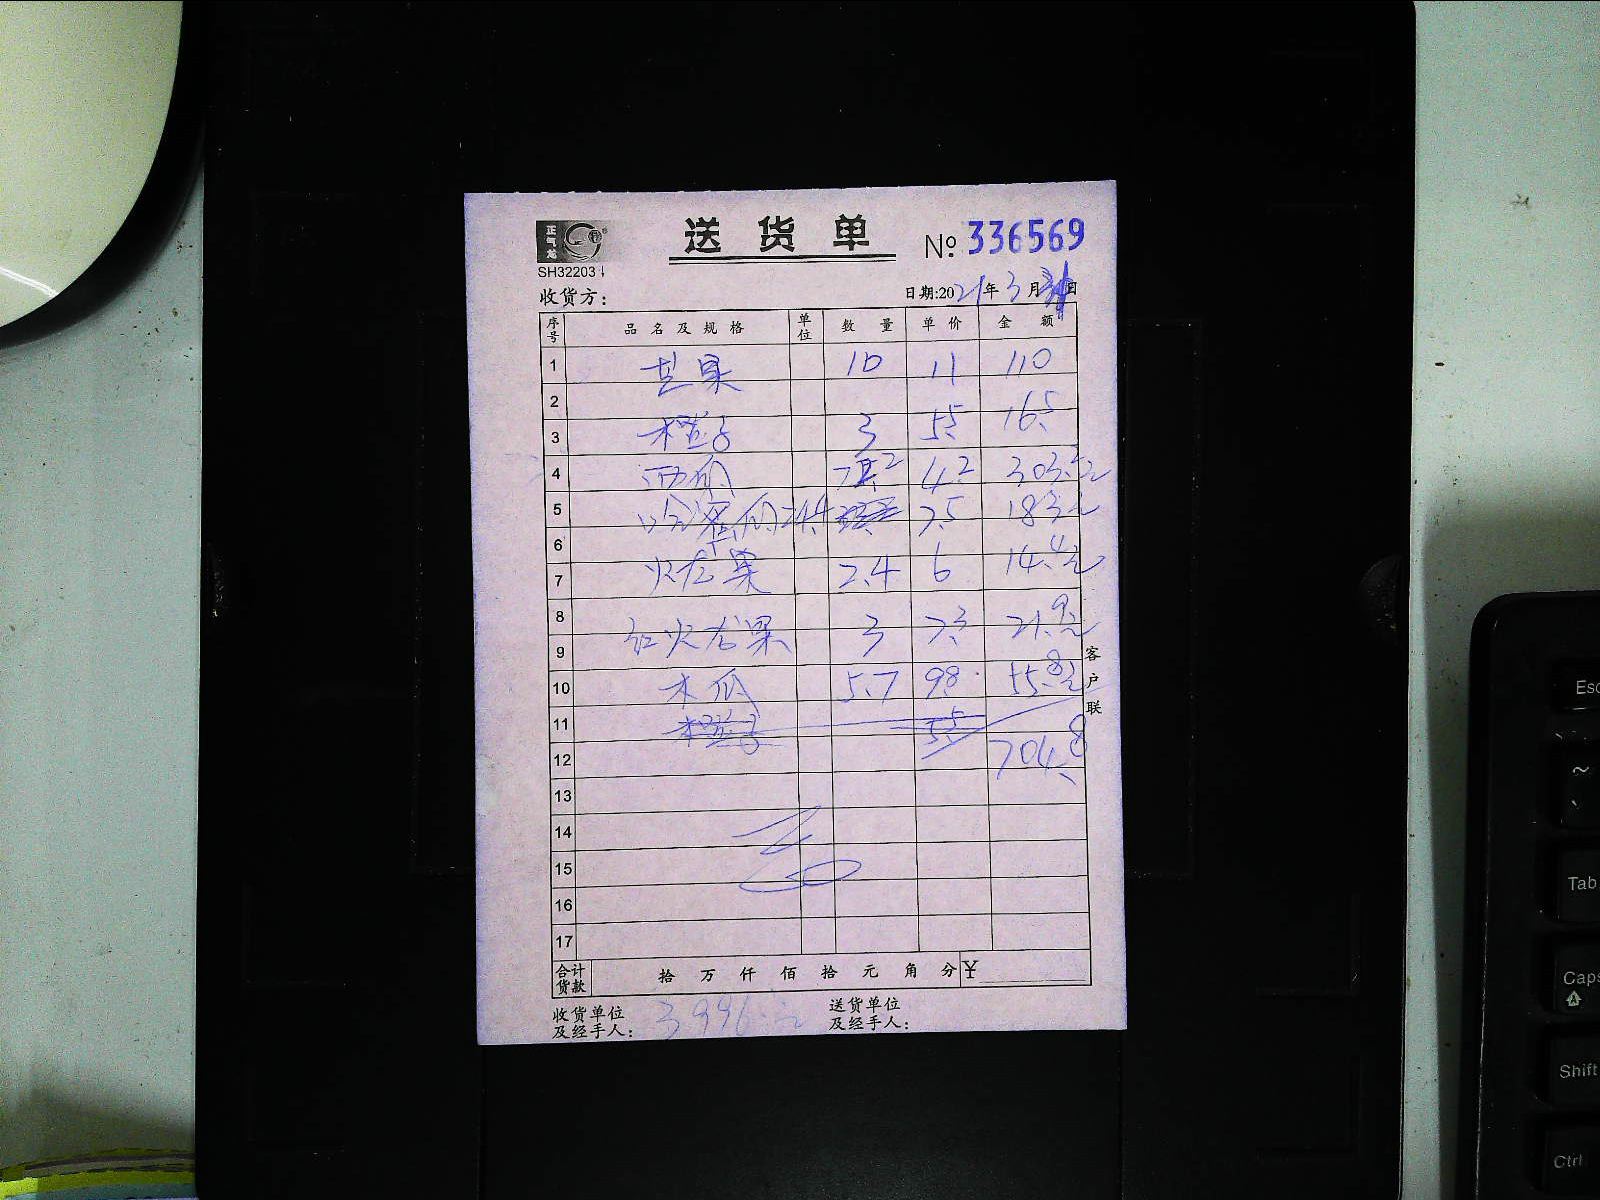 正气龙
送货单 № 336569
SH32203
收货方： 日期:2021年3月 日
序号 品名及规格 单位 数量 单价 金额
1 芒果 10 11 110
2
3 橙子 3 5.5 16.5
4 西瓜 72.2 4.2 303.2元
5 哈密瓜 24.4 7.5 183元
6
7 火龙果 2.4 6 14.4元
8
9 红火龙果 3 7.3 21.9元
10 木瓜 5.7 9.8 55.8元
11 橙子 5.5
12 704.8
13
14
15
16
17
合计货款 拾万仟佰拾元角分 ¥
客户联
收货单位 送货单位
及经手人： 3996元 及经手人：
Esc
~
Tab
Caps
Shift
Ctrl